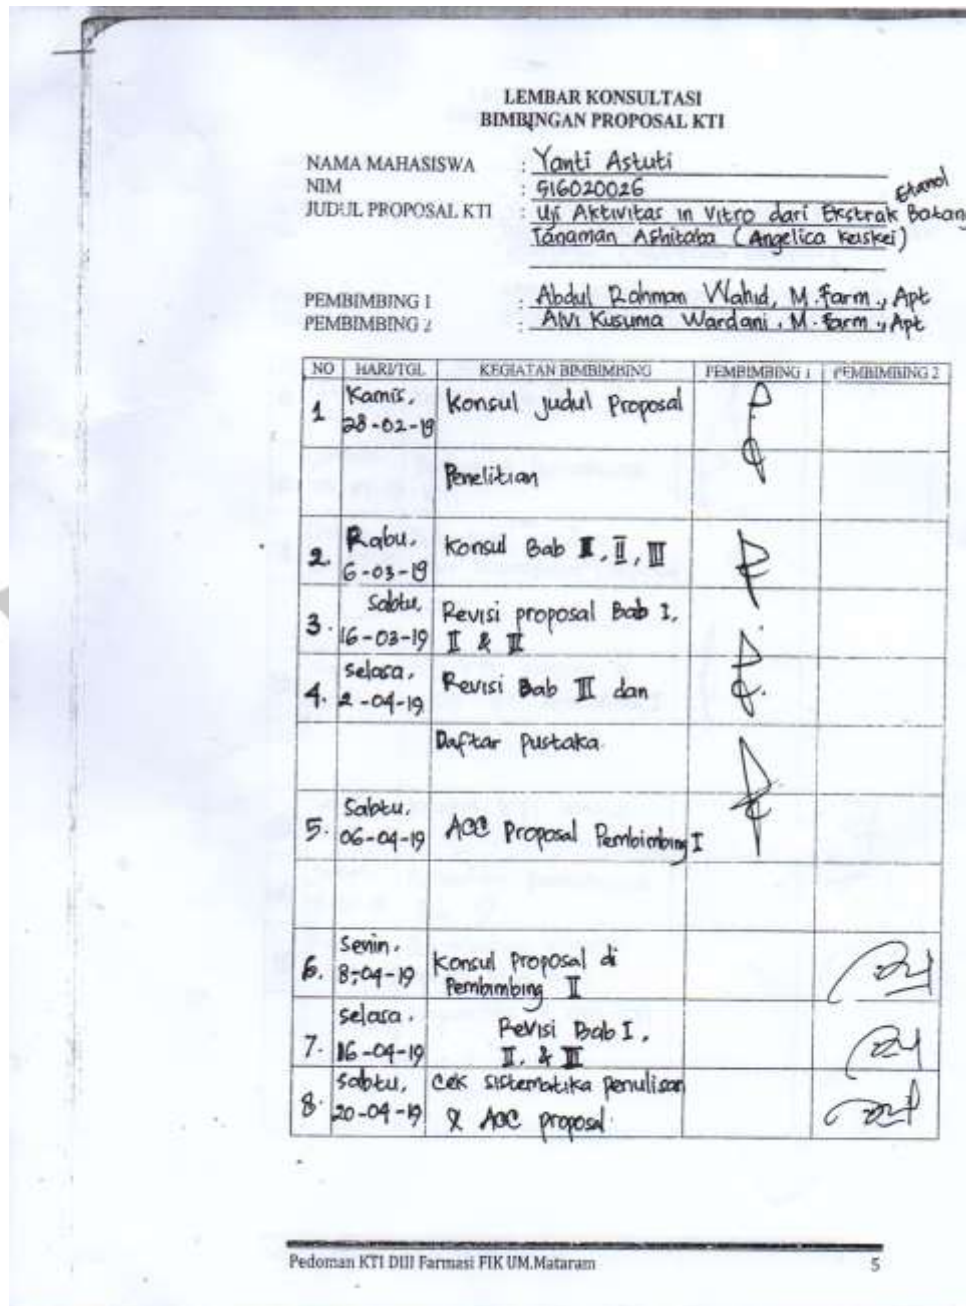 LEMBAR KONSULTASI
BIMBINGAN PROPOSAL KTI
NAMA MAHASISWA : Yanti Astuti
NIM : 516020026
Etanol
JUDUL PROPOSAL KTI : Uji Aktivitas in Vitro dari Ekstrak Batang
Tanaman Ashitaba (Angelica keiskei)
PEMBIMBING 1 : Abdul Rahman Wahid, M.Farm., Apt
PEMBIMBING 2 : Alvi Kusuma Wardani, M.Farm., Apt
NO HARI/TGL KEGIATAN BIMBIMBING PEMBIMBING 1 PEMBIMBING 2
1 Kamis, 28-02-19 Konsul Judul Proposal
Penelitian
2. Rabu, 6-03-19 Konsul Bab I, II, III
3. Sabtu, 16-03-19 Revisi proposal Bab I,
II & III
4. Selasa, 2-04-19 Revisi Bab III dan
Daftar Pustaka.
5. Sabtu, 06-04-19 ACC Proposal Pembimbing I
6. Senin, 8-04-19 Konsul Proposal di
Pembimbing II
7. Selasa, 16-04-19 Revisi Bab I,
II, & III
8. Sabtu, 20-04-19 Cek sistematika penulisan
& ACC proposal.
Pedoman KTI DIII Farmasi FIK UM.Mataram 5